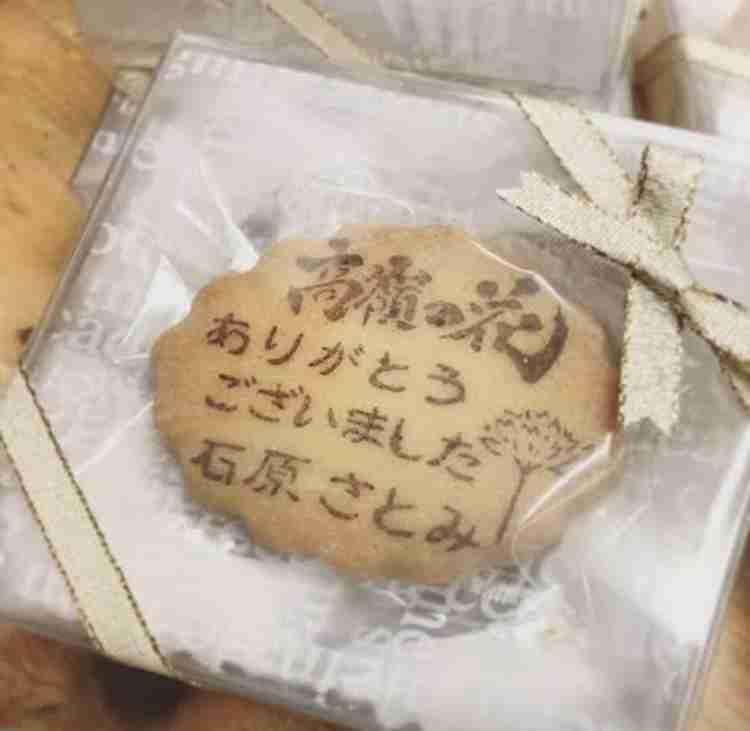 高嶺の花
ありがとう
ございました
石原さとみ